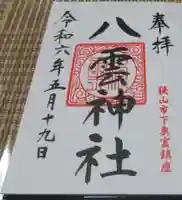 奉拝
狭山市下奥富鎮座
八雲神社
令和六年五月十九日